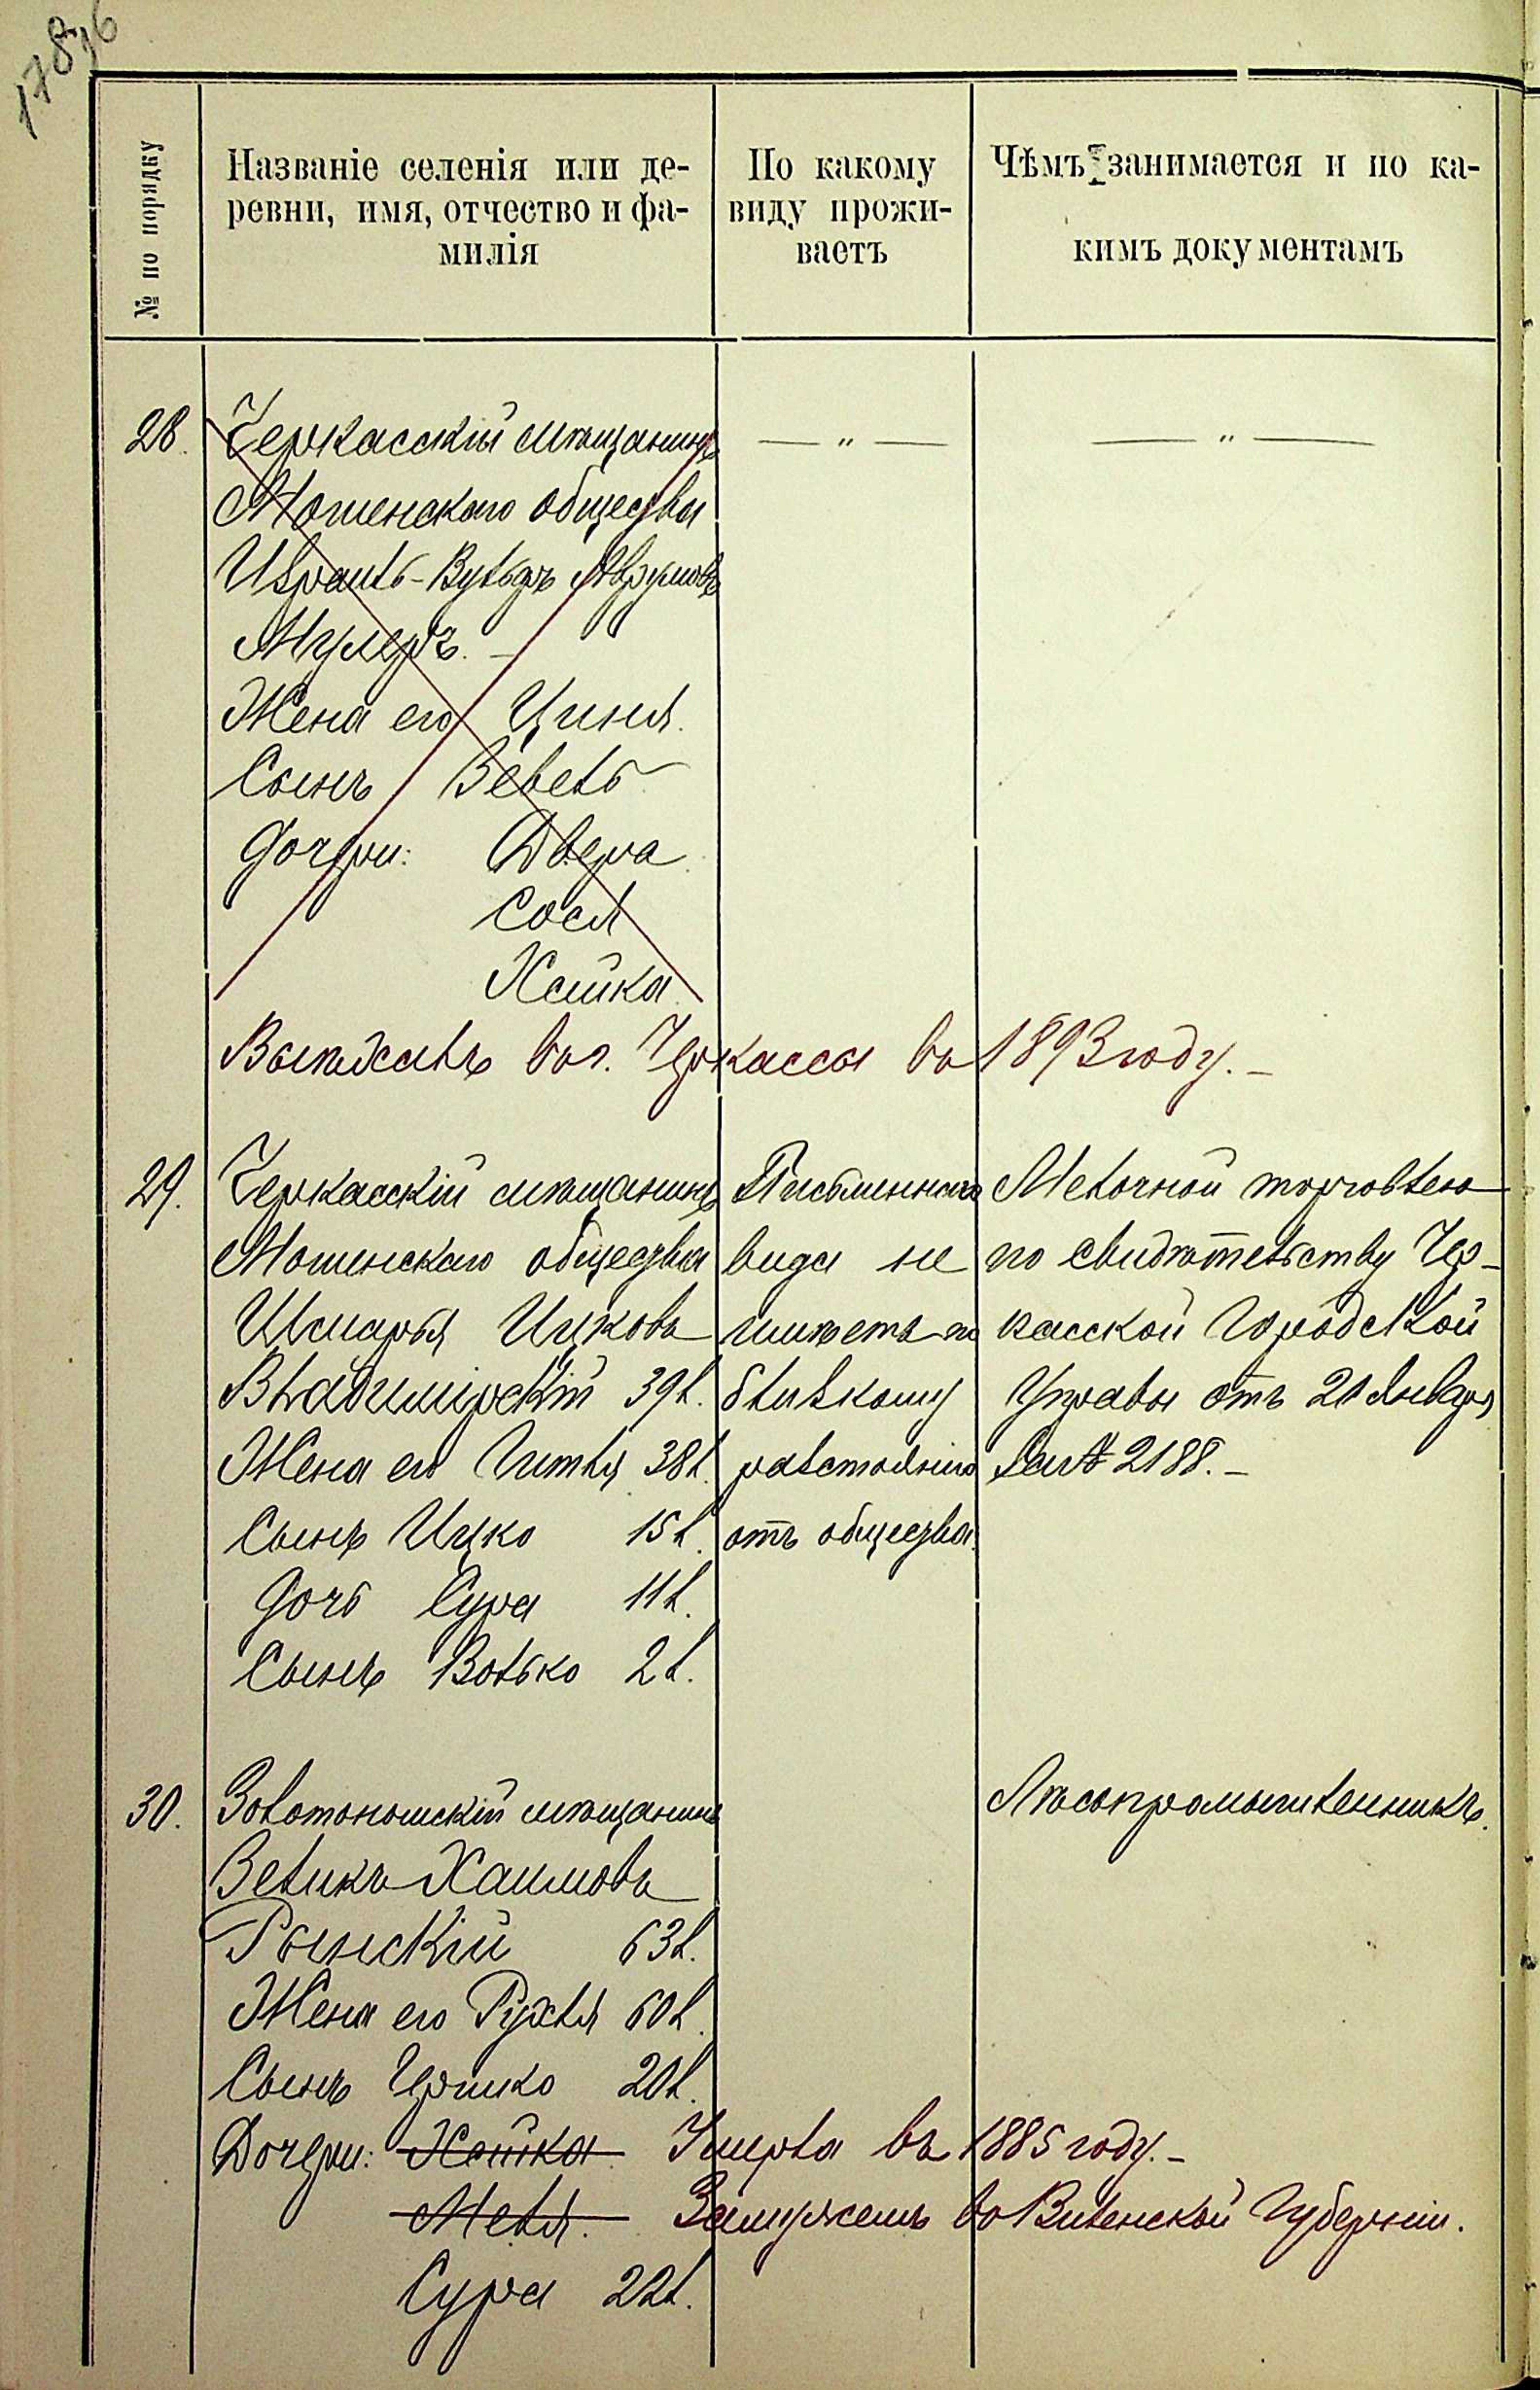 № по порядку
Названіе селенія или де-
ревни, имя, отчество и фа-
милія
По какому
виду прожи-
ваетъ
Чѣмъ занимается и по ка-
кимъ документамъ
28.
Черкасскій мѣщанинъ
Мошенскаго общества
Аврумовъ
Мулеръ. –
Жена его Циня.
Сынъ Вевель
Дочери: Двера
Сося
Хайка
— „ —
— „ —
Выѣхалъ въ г. Черкассы въ 1893 году. –
29.
Черкасскій мѣщанинъ
Мошенскаго общества
Шмарья Ицковъ
Владимірскій 39 л.
Жена его Гитля 38 л.
Сынъ Ицко 15 л.
Дочь Сура 11 л.
Сынъ Волько 2 л.
Письменнаго
вида не
имѣетъ по
близкому
разстоянію
отъ общества.
Мелочной торговлею
по свидѣтельству Чер-
касской Городской
Управы отъ 21 Января
за № 2188. –
30.
Золотоношскій мѣщанинъ
Зеликъ Хаимовъ
Рынскій 63 л.
Жена его Рухля 60 л.
Сынъ Гершко 20 л.
Дочери: Хайка Умерла въ 1885 году. –
Меля. Замужемъ въ Виленской Губерніи.
Сура 22 л.
Лѣсопромышленникъ.